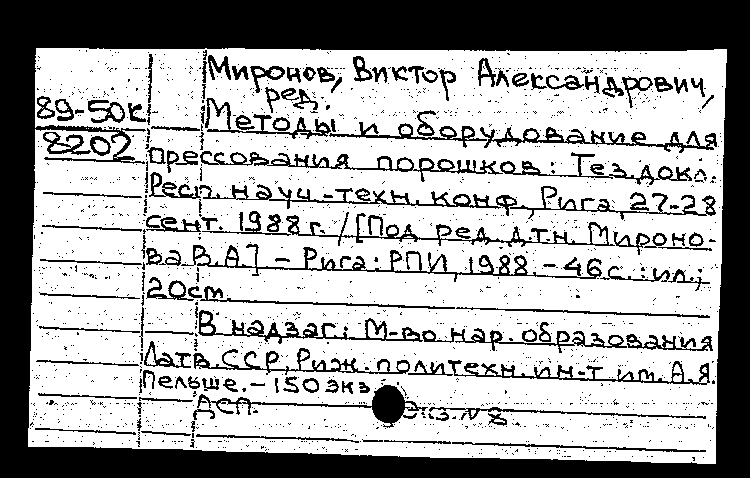 Миронов, Виктор Александрович,
ред.
89-50к
8202
Методы и оборудование для
прессования порошков: Тез.докл.
Респ. науч.-техн. конф., Рига, 27-28
сент. 1988 г. / [Под ред. д.т.н. Мироно-
ва В.А.] - Рига: РПИ, 1988. - 46 с. : ил.;
20 см.
В надзаг.: М-во нар. образования
Латв. ССР, Риж. политехн. ин-т им. А.Я.
Пельше. - 150 экз.
ДСП. Экз. № 8.